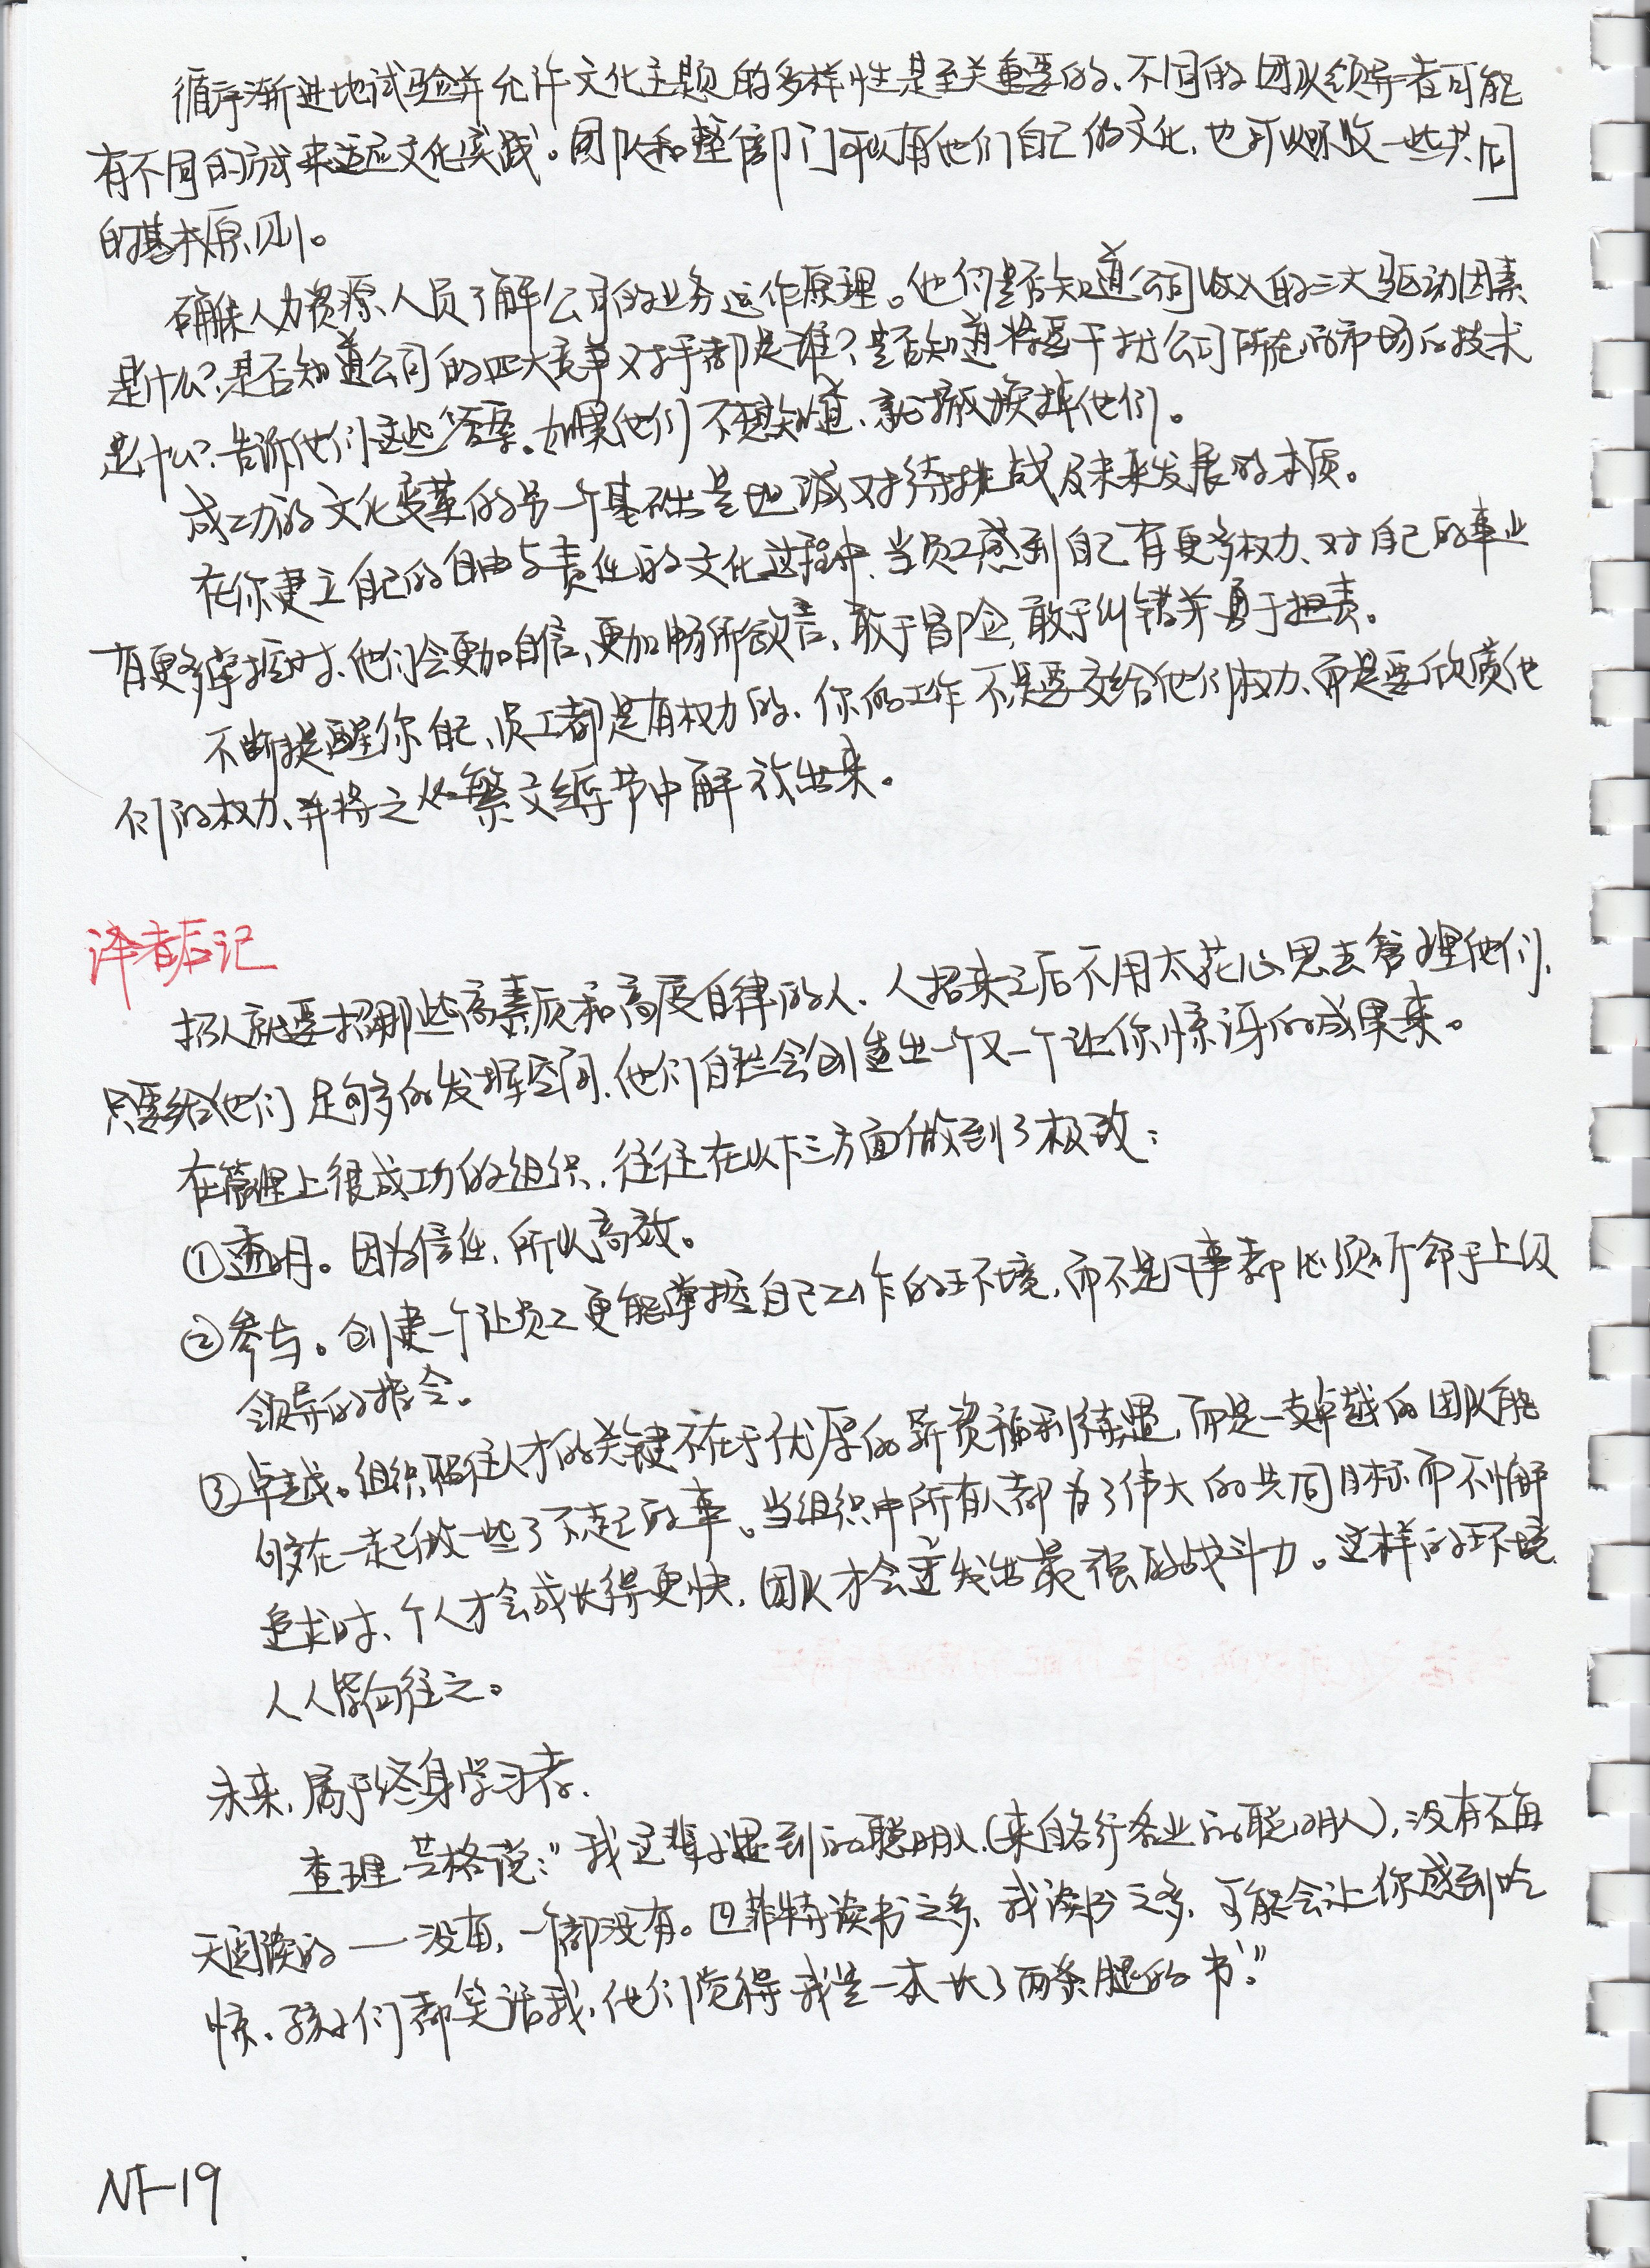 循序渐进地试验并允许文化主题的多样性是至关重要的、不同的团队领导者可能
有不同的方式来适应文化实践。团队和整个部门可以有他们自己的文化,也可以吸收一些共同
的基本原则。
确保人力资源人员了解公司的业务运作原理。他们是否知道公司收入的三大驱动因素
是什么?是否知道公司的四大竞争对手都是谁?是否知道将要干扰公司所在的市场的技术
是什么?告诉他们这些答案。如果他们不想知道、就撤换掉他们。
成功的文化变革的另一个基础是坦诚对待挑战及未来发展的本质。
在你建立自己的自由与责任的文化过程中、当员工感到自己有更多权力、对自己的事业
有更多掌控时、他们会更加自信、更加畅所欲言、敢于冒险,敢于纠错并勇于担责。
不断提醒你自己、员工都是有权力的、你的工作不是要交给他们权力、而是要欣赏他
们的权力、并将之从繁文缛节中解放出来。
译者后记
招人就要招那些高素质和高度自律的人、人招来之后不用太花心思去管理他们,
只要给他们足够多的发挥空间,他们自然会创造出一个又一个让你惊讶的成果来。
在管理上很成功的组织,往往在以下三方面做到了极致:
①透明。因为信任,所以高效。
②参与。创建一个让员工更能掌控自己工作的环境,而不是凡事都必须听命于上级
领导的指令。
③卓越。组织留住人才的关键不在于优厚的薪资福利待遇,而是一支卓越的团队能
够在一起做一些了不起的事。当组织中所有人都为了伟大的共同目标而不懈
追求时、个人才会成长得更快,团队才会迸发出最强的战斗力。这样的环境
人人皆向往之。
未来,属于终身学习者.
查理芒格说:"我这辈子遇到的聪明人(来自各行各业的聪明人),没有不每
天阅读的——没有,一个都没有。巴菲特读书之多、我读书之多、可能会让你感到吃
惊、孩子们都笑话我,他们觉得我是一本长了两条腿的书。"
NF-19